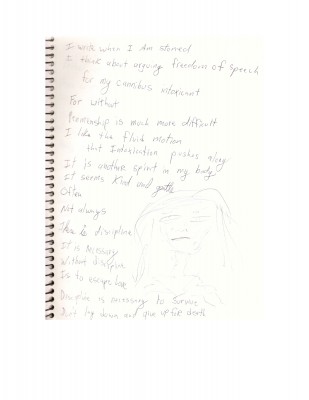 I write when I am stoned
I think about arguing freedom of speech
for my cannibus intoxicant
For without
Penmenship is much more difficult
I like the fluid motion
that Intoxication pushes along
It is another spirit in my body
It seems kind and gentle
Often
Not always
There is discipline
It is necessary
Without discipline
Is to escape
Discipline is necessary to survive
Don't lay down and give up for death